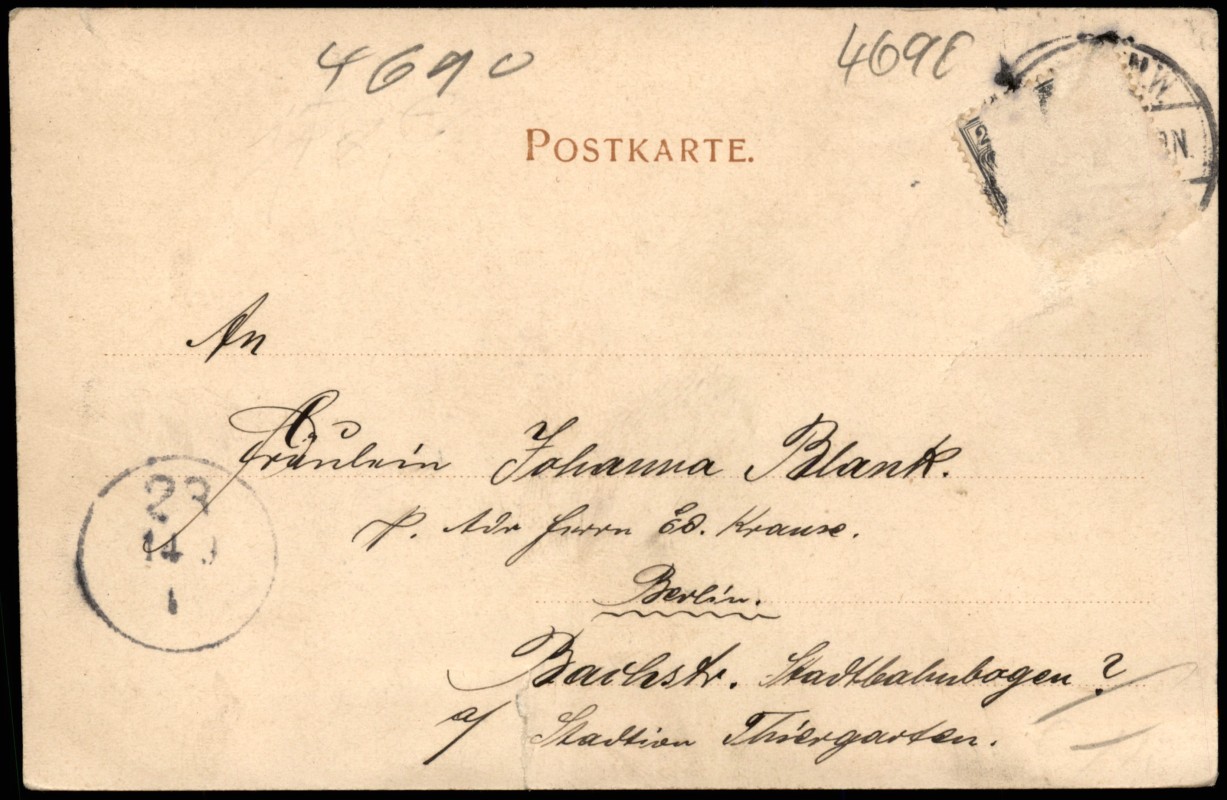 4690
469
POSTKARTE.
2
An
Fräulein Johanna Blank.
p. Adr Herrn Ed. Krause.
Berlin.
Bachstr. Stadtbahnbogen?
a/ Stadtion Thiergarten.
23
1